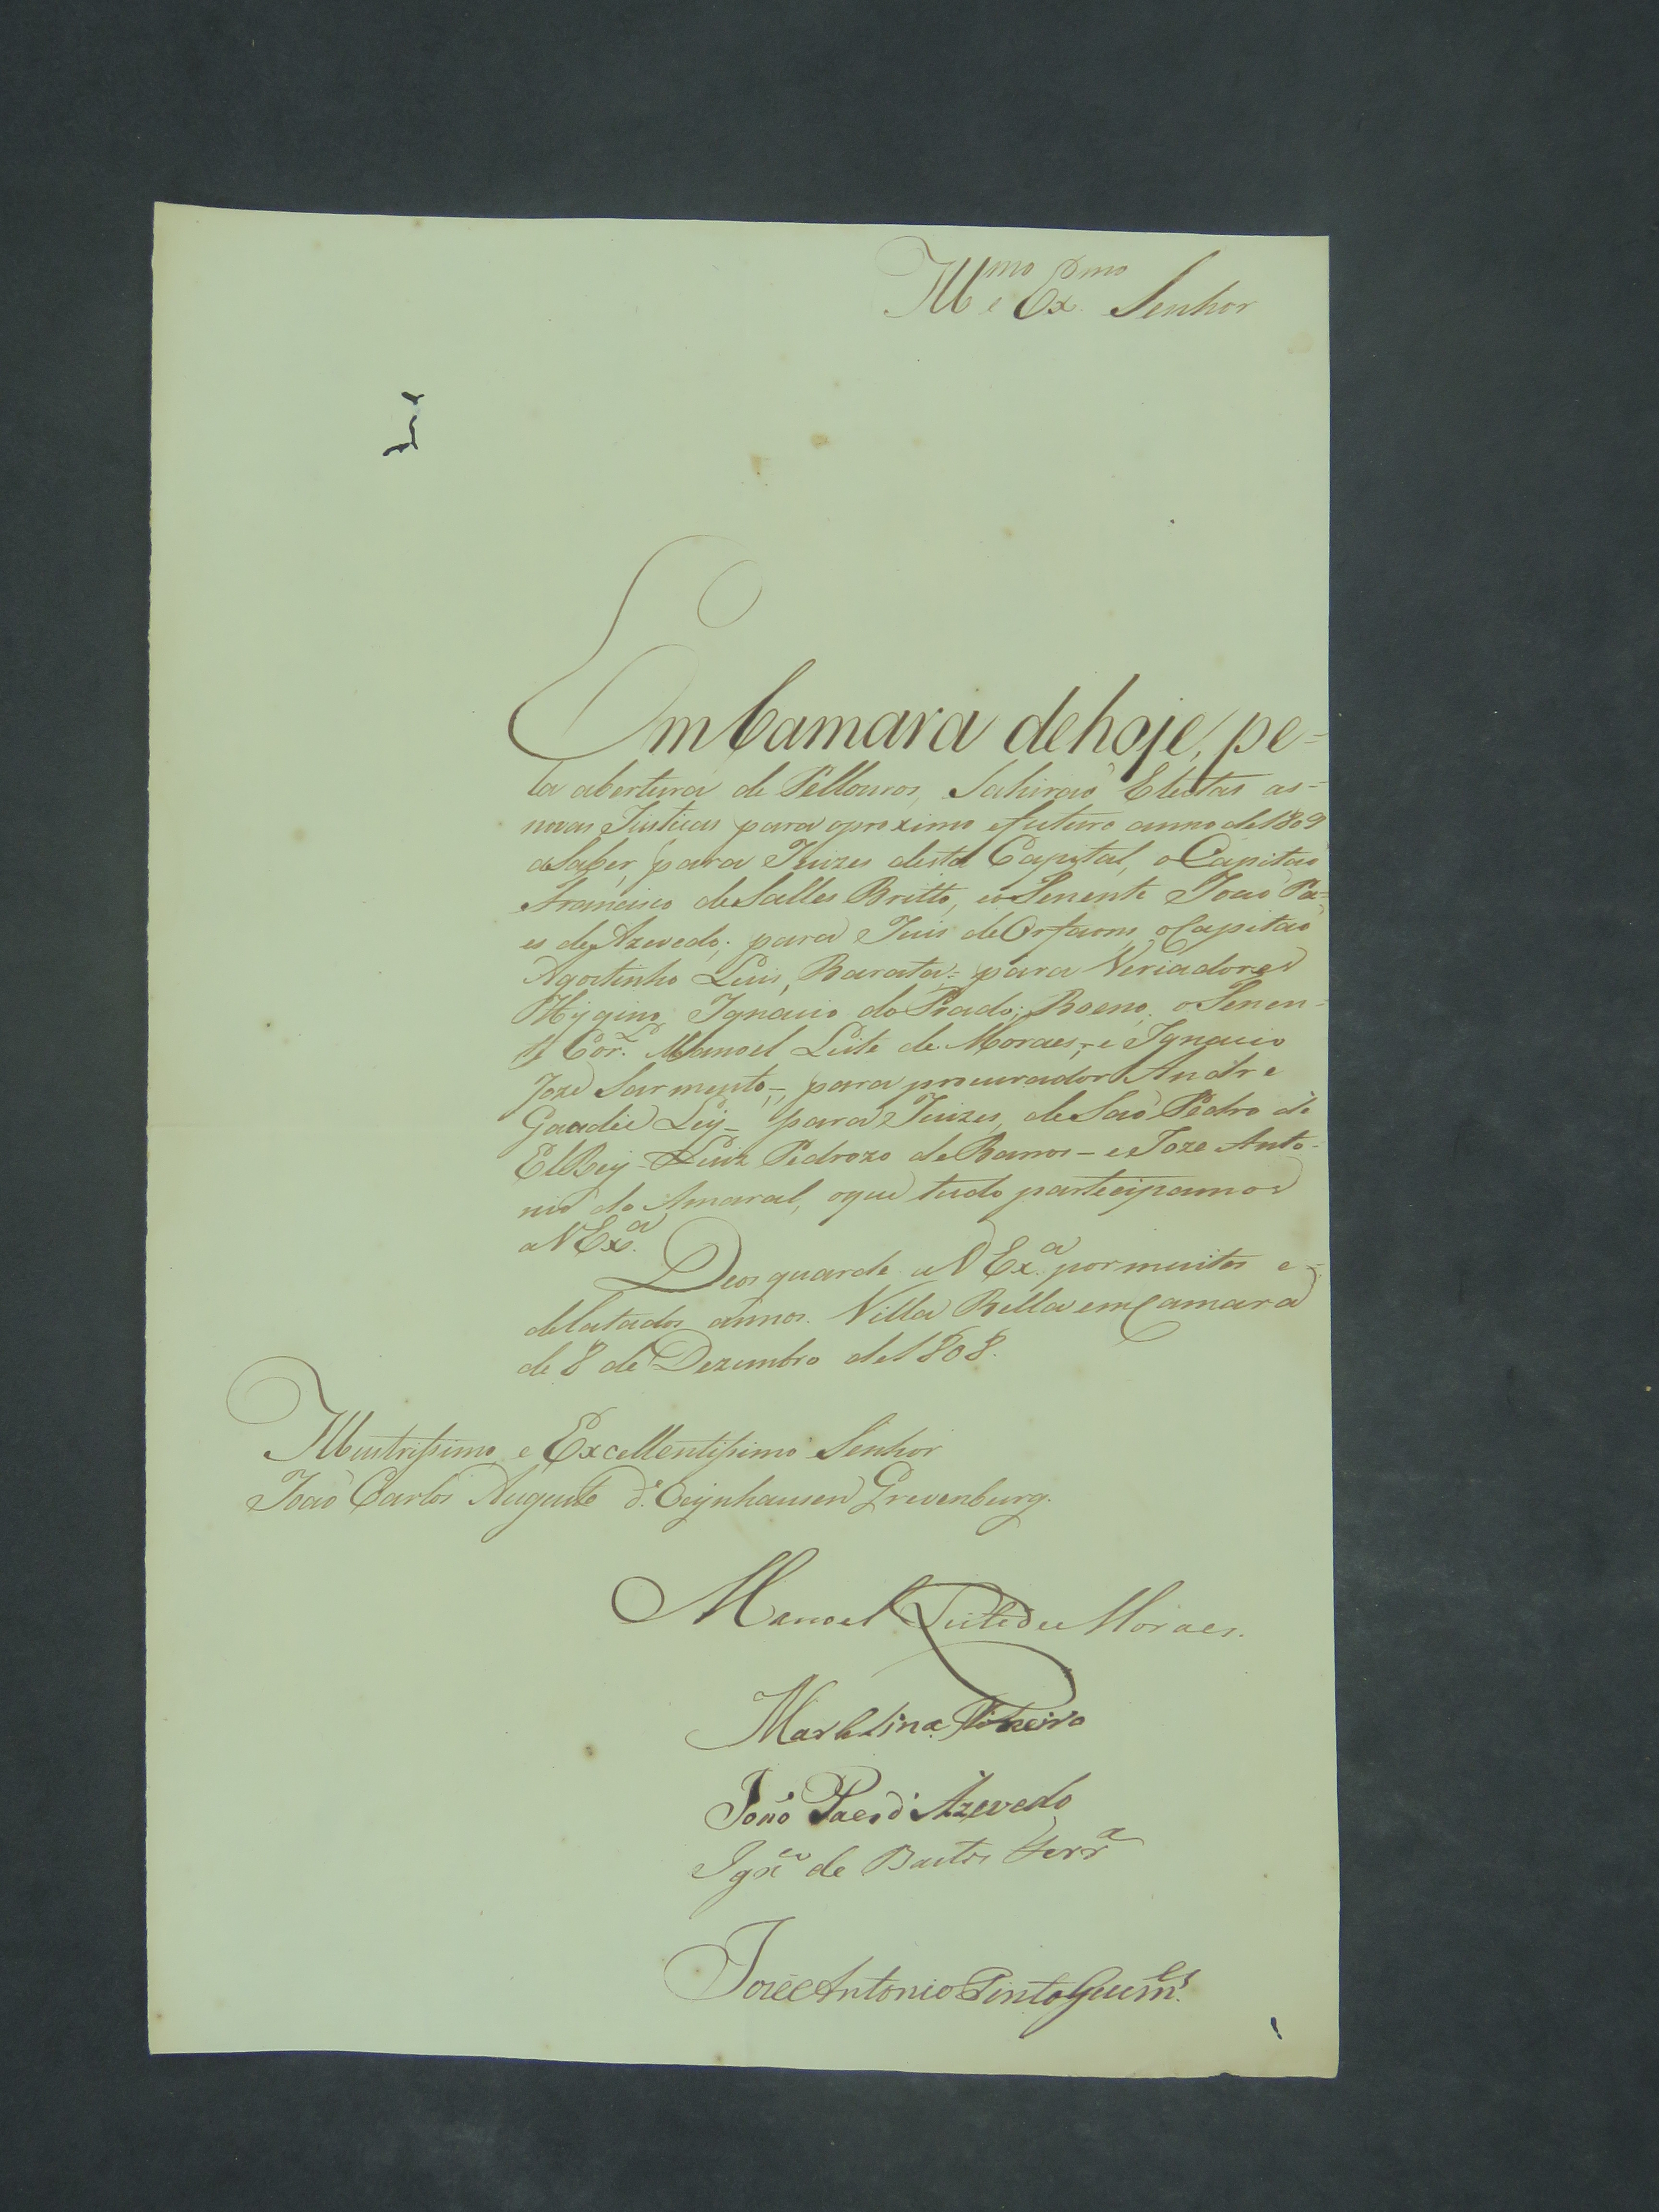 Ill.mo e Ex.mo Senhor
Em Camara de hoje, pe=
la abertura de Pellouros, Sahiraõ Electas as-
novas Justicas para oproximo efuturo anno de 1809
aSaber, para Juizes desta Capital, o Capitaõ
Francisco de Salles Britto, eo Tenente Joaõ Pa=
es de Azevedo; para Juis de Orfaons, oCapitaõ
Agostinho Luis, Barata= para Veriadores
Hygino Ignacio do Prado; Boeno, o Tenen-
te Cor.el Manoel Leite de Moraes, e Ignacio
Joze Sarmento,- para procurador Andre
Gaudie Ley- para Juizes, de Saõ Pedro de
ElRey= Luiz Pedrozo de Barros- e Joze Anto-
nio do Amaral, oque tudo partecipamos
a V Ex.a
Deos guarde a V Ex.a por muitos e-
delatados annos. Villa Bella em Camara
de 8 de Dezembro de 1808.
Illustrissimo, e Excellentissimo Senhor
Joaõ Carlos Augusto d'Oeynhausen Grevenburg.
Manoel Leite de Moraes.
Joaõ Paes d'Azevedo
Ign.co de Bastos Ferr.a
Joze Antonio Pinto Guim.es